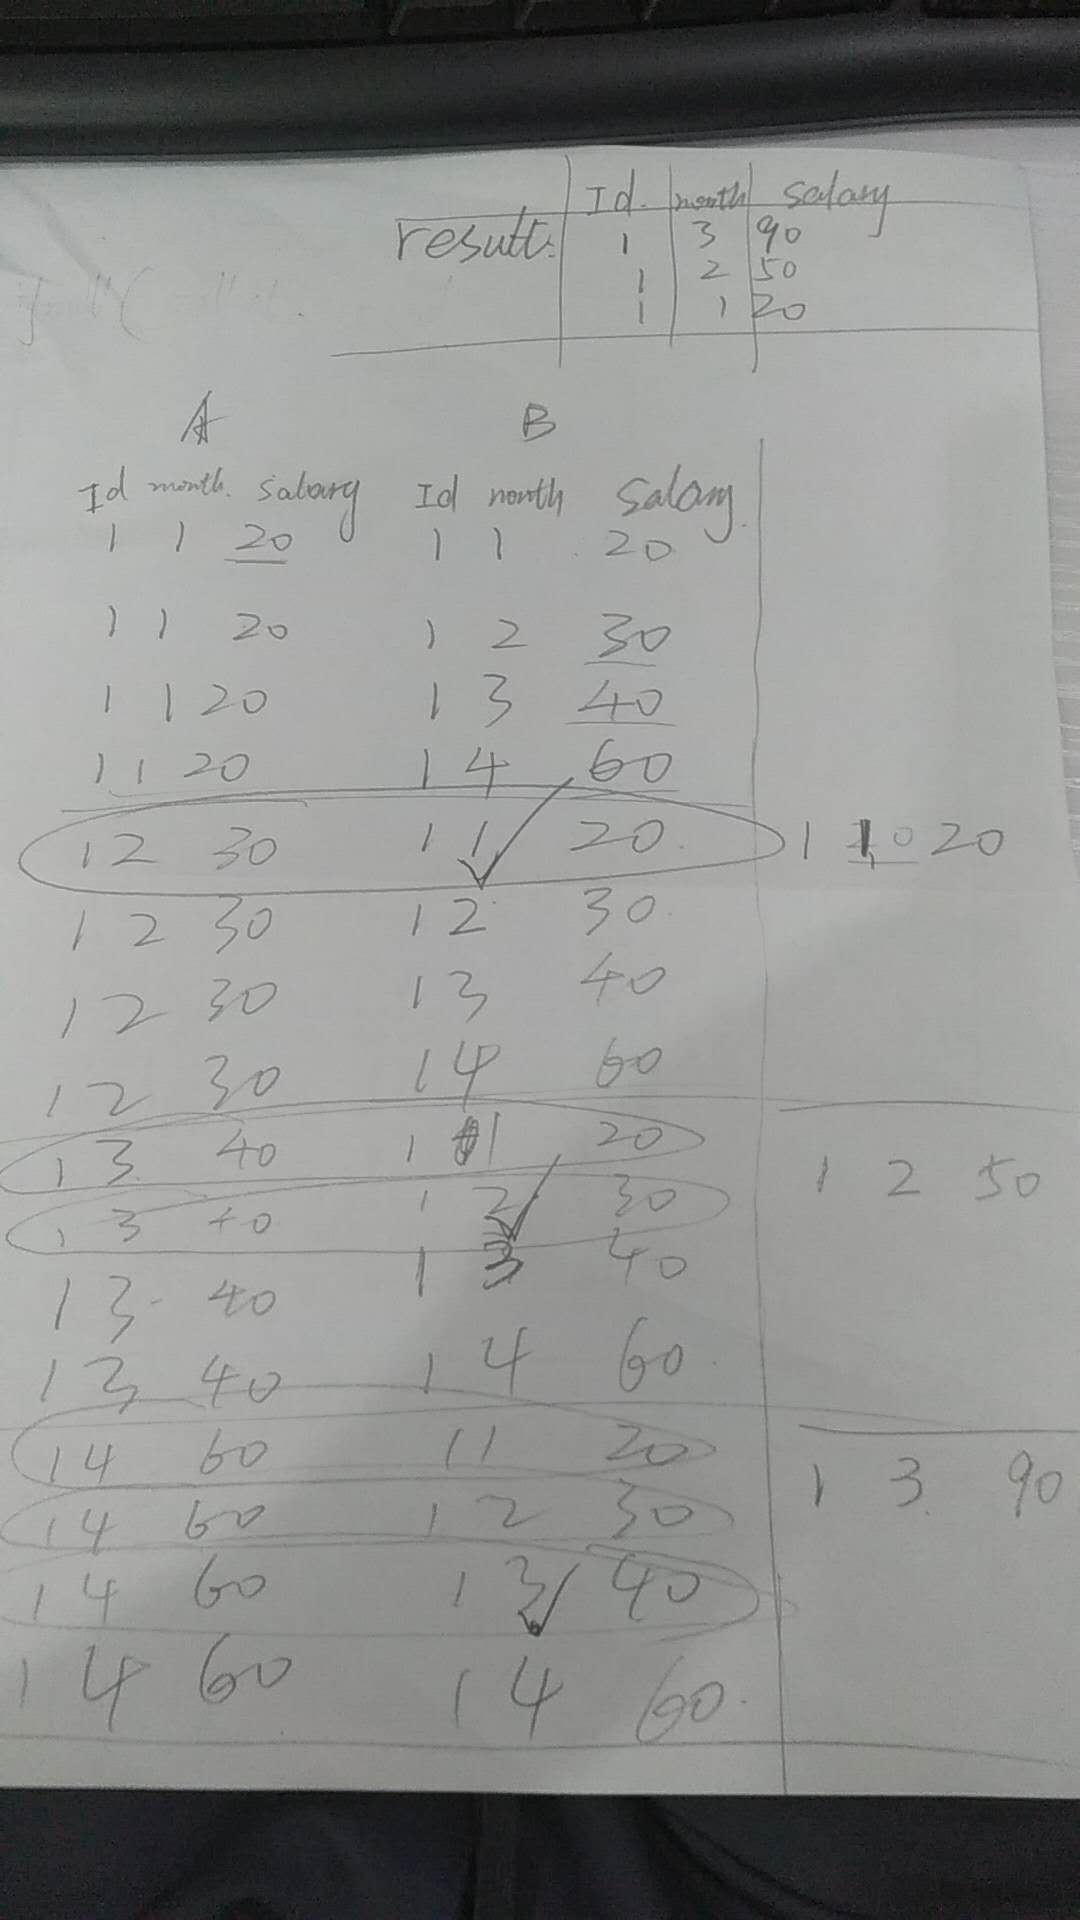 Id. month salary
result: 1 3 90
1 2 50
1 1 20
A B
Id month. Salary Id month Salary
1 1 20 1 1 20
1 1 20 1 2 30
1 1 20 1 3 40
1 1 20 1 4 60
1 2 30 1 1 20 1 1 0 20
1 2 30 1 2 30
1 2 30 1 3 40
1 2 30 1 4 60
1 3 40 1 1 20 1 2 50
1 3 40 1 2 30
1 3 40 1 3 40
1 3 40 1 4 60
1 4 60 1 1 20 1 3 90
1 4 60 1 2 30
1 4 60 1 3 40
1 4 60 1 4 60